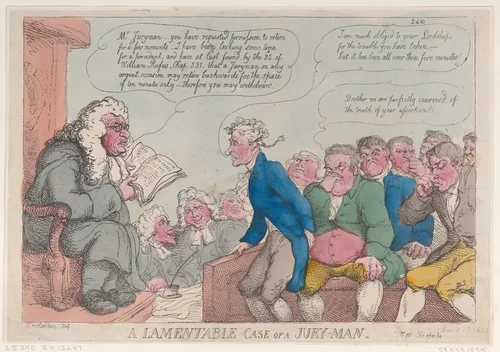 Mr. Juryman — you have requested permission to retire
for a few moments — I have been looking some time
for a precedent, and have at last found by the 25 of
William Rufus, Chap. 531. that a Juryman on any
urgent occasion may retire backwards for the space
of ten minutes only — therefore you may withdraw.
240
I am much obliged to your Lordship
for the trouble you have taken —
but it has been all over these five minutes!
Brother we are perfectly convinced of
the truth of your assertion!!
Rowlandson Del
A LAMENTABLE CASE OF A JURY-MAN.